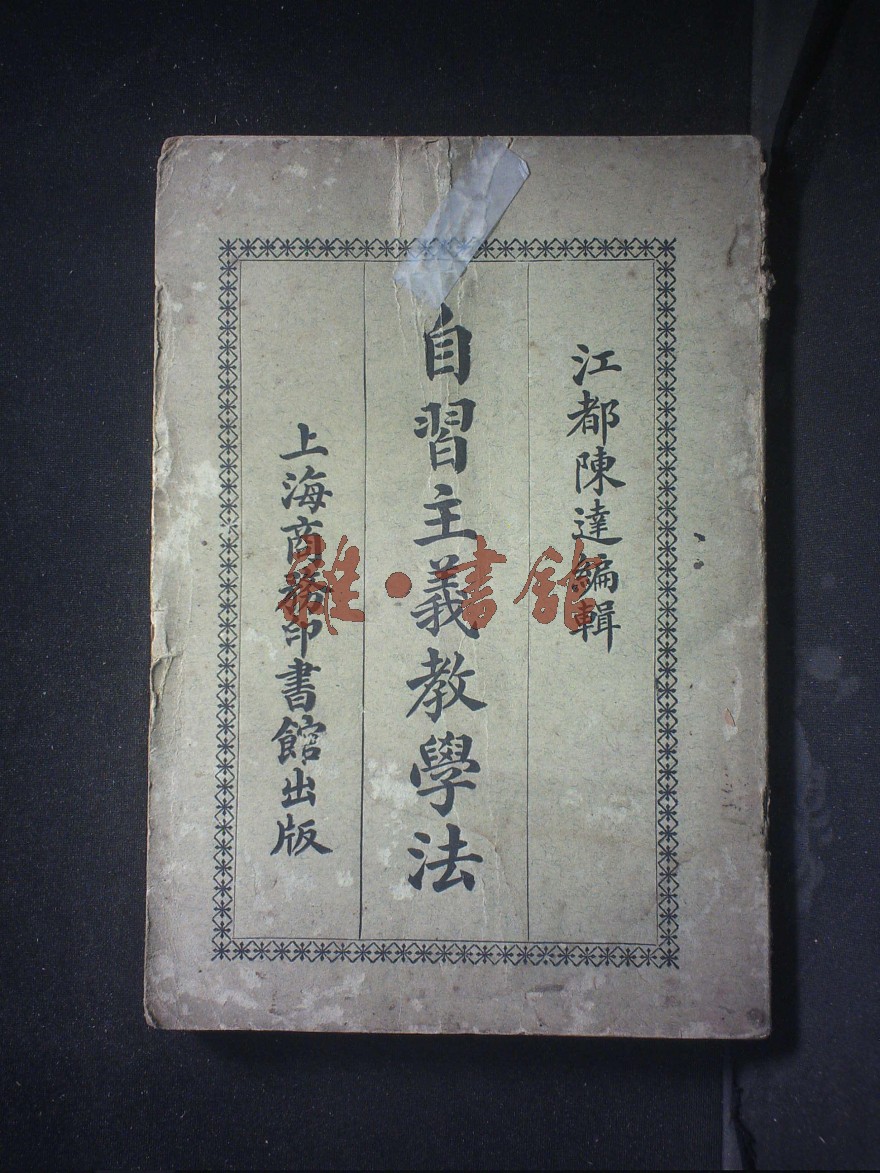 江都陳達編輯
自習主義教學法
上海商務印書館出版
雜·書館